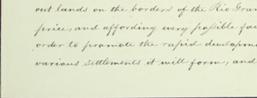 out lands on the borders of the Rio Gran
price, and affording every possible fac
order to promote the rapid developme
various settlements it will form, and